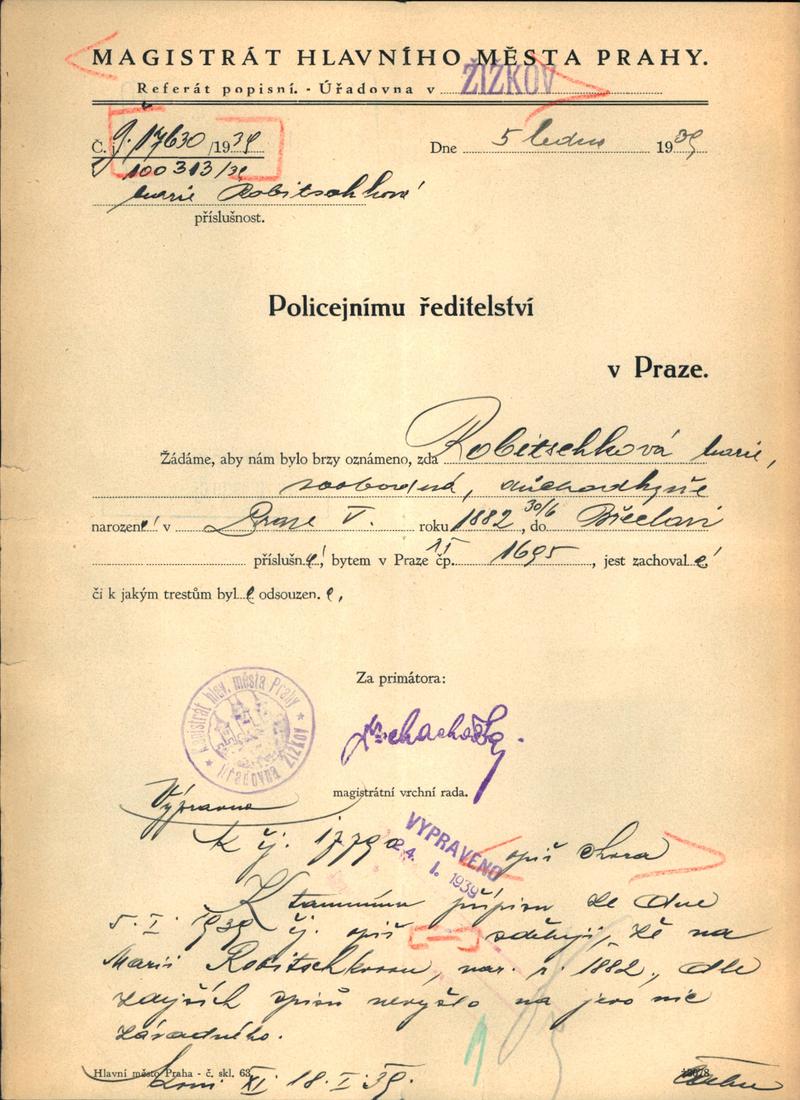 MAGISTRÁT HLAVNÍHO MĚSTA PRAHY.
Referát popisní. - Úřadovna v ŽIŽKOV
Č. j. 17630/1939
100313/39
Dne 5 ledna 1939
Marie Robitschková
příslušnost.
Policejnímu ředitelství
v Praze.
Žádáme, aby nám bylo brzy oznámeno, zda Robitschková Marie,
svobodná, důchodkyně
narozená v Praze V. roku 1882 30/6, do Břeclavi
příslušná, bytem v Praze XI čp. 1695, jest zachovalá
či k jakým trestům byla odsouzena,
Za primátora:
Magistrát hlav. města Prahy
Úřadovna ŽIŽKOV
magistrátní vrchní rada.
Výpravna
K čj. opiš shora
VYPRAVENO
24. I. 1939
K tamnímu přípisu ze dne
5. I. 1939 čj. opiš sděluji, že na
Marii Robitschkovou, nar. r. 1882, dle
zdejších spisů nevyšlo na jevo nic
závadného.
Hlavní město Praha - č. skl. 63.
XI 18. I. 39.